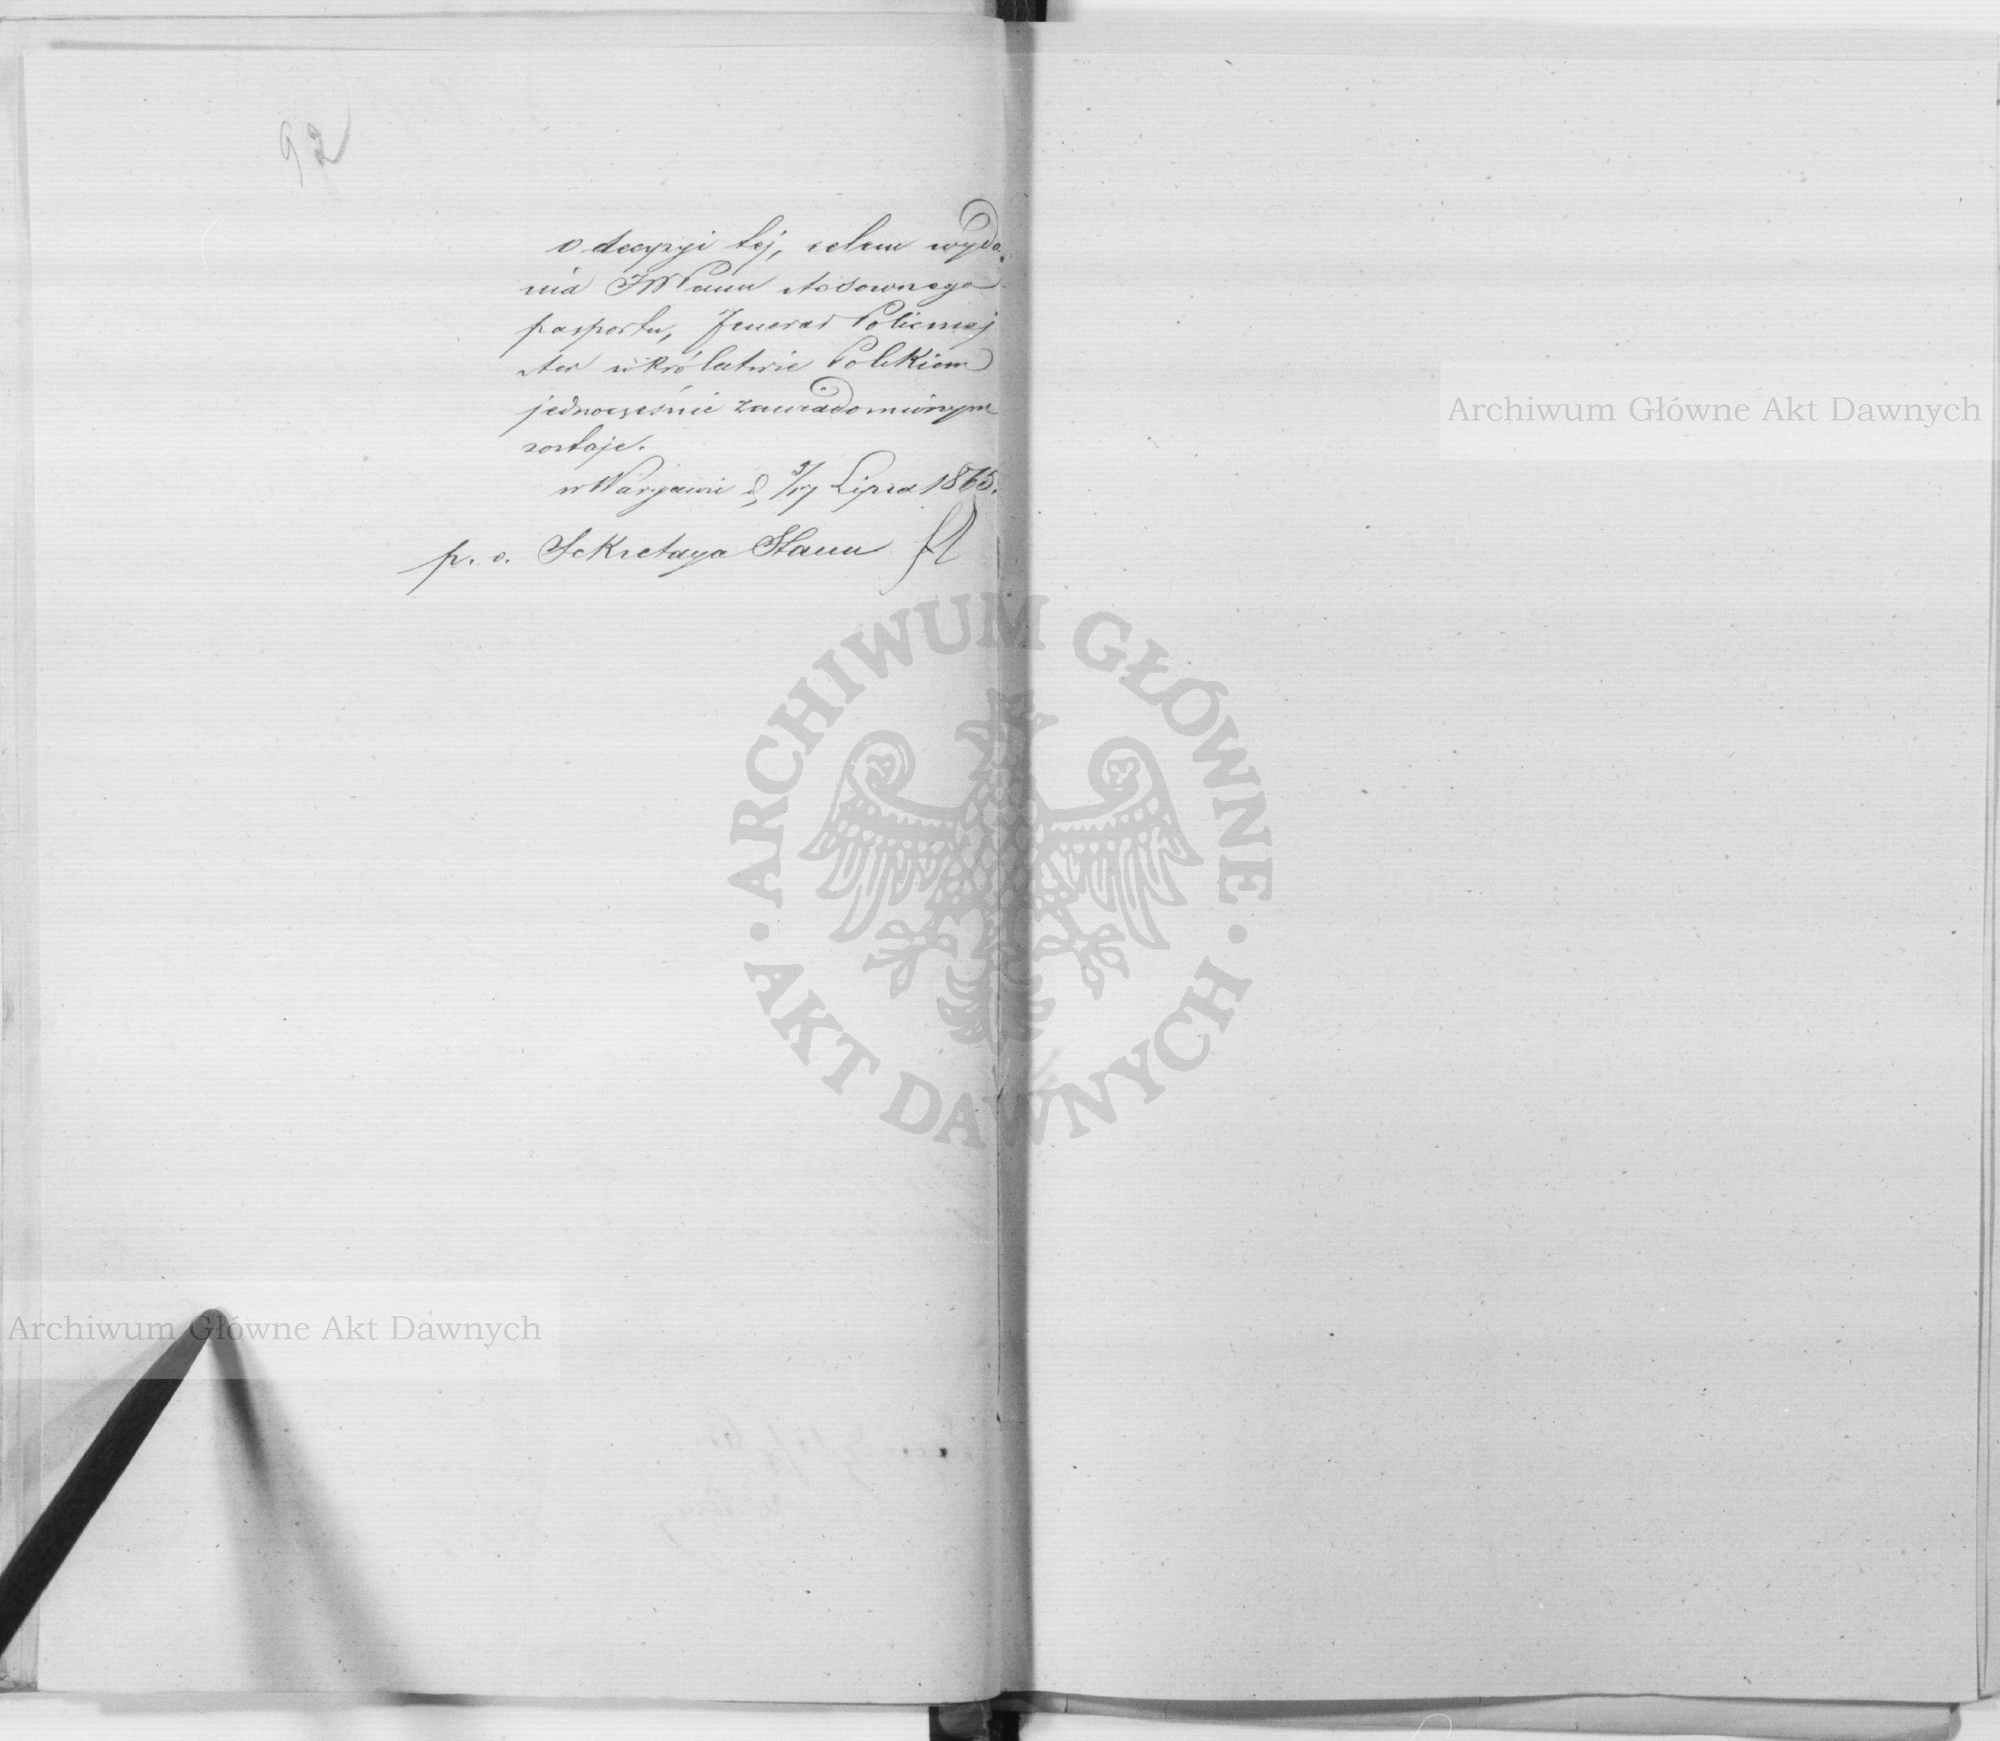 92
o decyzyi tej, celem wyda-
nia JWPanu stosownego
paszportu, Jenerał Policmaj
ster w Królestwie Polskiem
jednocześnie zawiadomionym
zostaje.
w Warszawie d. 5/17 Lipca 1865.
p. o. Sekretarza Stanu
Archiwum Główne Akt Dawnych
ARCHIWUM GŁÓWNE
AKT DAWNYCH
Archiwum Główne Akt Dawnych